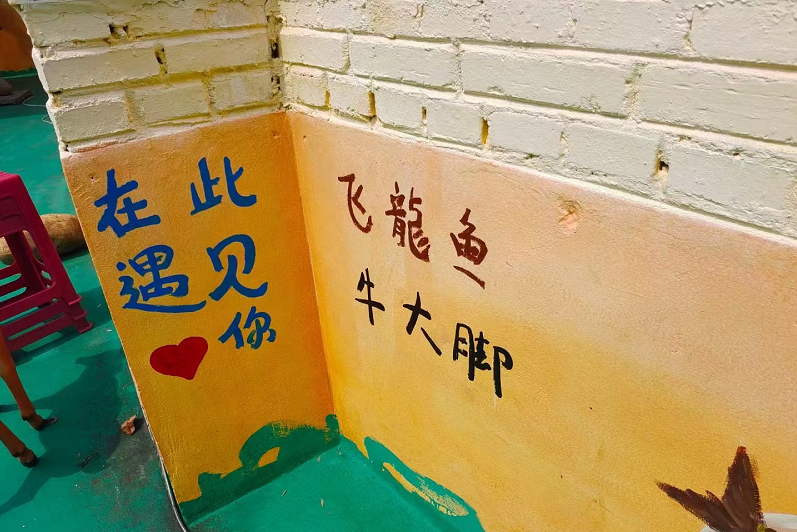 在此
遇见
你
飞龍鱼
牛大脚